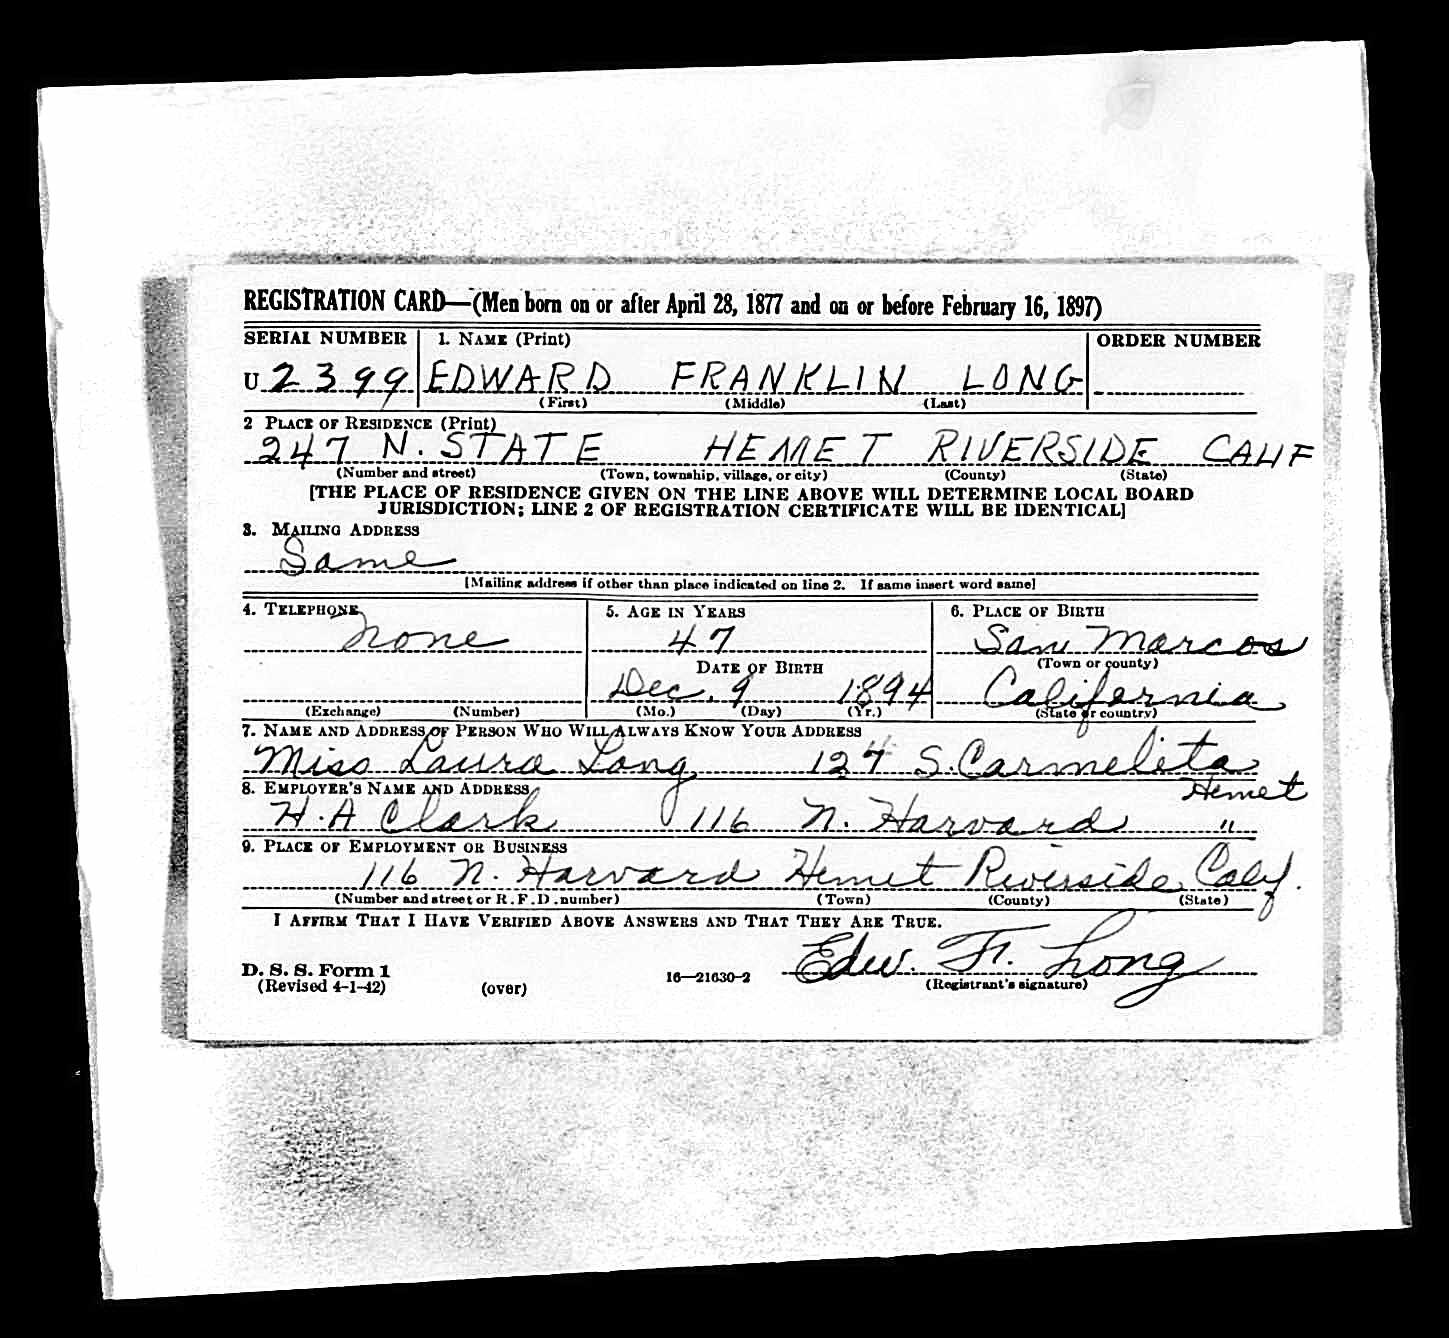 REGISTRATION CARD—(Men born on or after April 28, 1877 and on or before February 16, 1897)
SERIAL NUMBER 1. NAME (Print) ORDER NUMBER
U 2399 EDWARD FRANKLIN LONG
(First) (Middle) (Last)
2 PLACE OF RESIDENCE (Print)
247 N. STATE HEMET RIVERSIDE CALIF
(Number and street) (Town, township, village, or city) (County) (State)
[THE PLACE OF RESIDENCE GIVEN ON THE LINE ABOVE WILL DETERMINE LOCAL BOARD
JURISDICTION; LINE 2 OF REGISTRATION CERTIFICATE WILL BE IDENTICAL]
3. MAILING ADDRESS
Same
[Mailing address if other than place indicated on line 2. If same insert word same]
4. TELEPHONE 5. AGE IN YEARS 6. PLACE OF BIRTH
None 47 San Marcos
DATE OF BIRTH (Town or county)
Dec. 9 1894 California
(Exchange) (Number) (Mo.) (Day) (Yr.) (State or country)
7. NAME AND ADDRESS OF PERSON WHO WILL ALWAYS KNOW YOUR ADDRESS
Miss Laura Long 127 S. Carmelita
8. EMPLOYER'S NAME AND ADDRESS Hemet
H. A Clark 116 N. Harvard "
9. PLACE OF EMPLOYMENT OR BUSINESS
116 N. Harvard Hemet Riverside Calif.
(Number and street or R. F. D. number) (Town) (County) (State)
I AFFIRM THAT I HAVE VERIFIED ABOVE ANSWERS AND THAT THEY ARE TRUE.
Edw. Fr. Long
D. S. S. Form 1
(Revised 4-1-42) (over) 16—21630-2 (Registrant's signature)